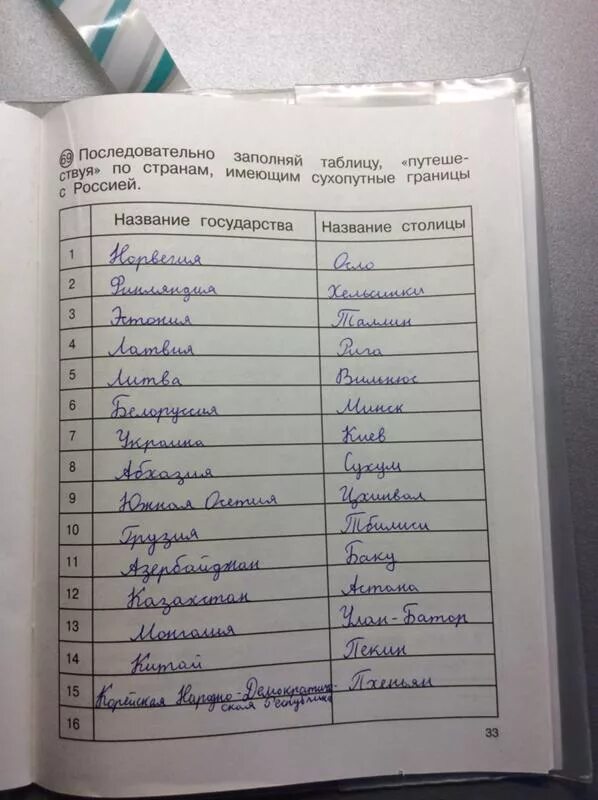 69 Последовательно заполняй таблицу, «путеше-
ствуя» по странам, имеющим сухопутные границы
с Россией.
Название государства Название столицы
1 Норвегия Осло
2 Финляндия Хельсинки
3 Эстония Таллин
4 Латвия Рига
5 Литва Вильнюс
6 Белоруссия Минск
7 Украина Киев
8 Абхазия Сухум
9 Южная Осетия Цхинвал
10 Грузия Тбилиси
11 Азербайджан Баку
12 Казахстан Астана
13 Монголия Улан-Батор
14 Китай Пекин
15 Корейская Народно-Демократиче- Пхеньян
ская Республика
16
33